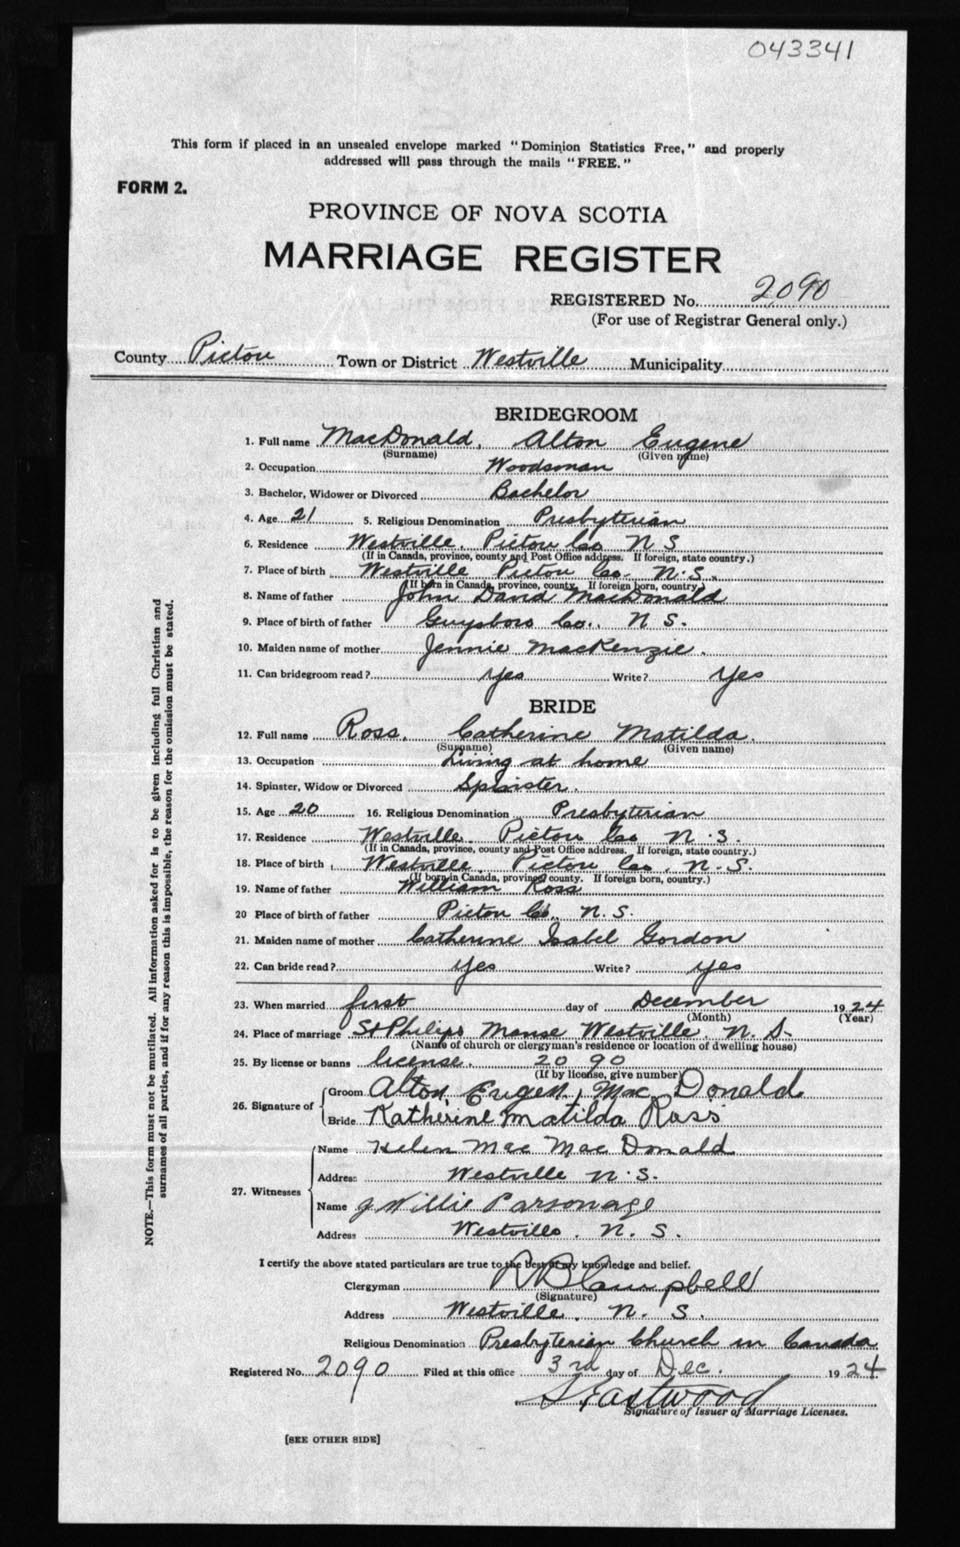 043341
This form if placed in an unsealed envelope marked "Dominion Statistics Free," and properly
addressed will pass through the mails "FREE."
FORM 2.
PROVINCE OF NOVA SCOTIA
MARRIAGE REGISTER
REGISTERED No. 2090
(For use of Registrar General only.)
County Pictou Town or District Westville Municipality
BRIDEGROOM
1. Full name MacDonald, Alton Eugene
(Surname) (Given name)
2. Occupation Woodsman
3. Bachelor, Widower or Divorced Bachelor
4. Age 21 5. Religious Denomination Presbyterian
6. Residence Westville Pictou Co N S
(If in Canada, province, county and Post Office address. If foreign, state country.)
7. Place of birth Westville Pictou Co. N.S.
(If born in Canada, province, county. If foreign born, country.)
8. Name of father John David MacDonald
9. Place of birth of father Guysboro Co. N S.
10. Maiden name of mother Jennie MacKenzie.
11. Can bridegroom read? Yes Write? Yes
BRIDE
12. Full name Ross, Catherine Matilda.
(Surname) (Given name)
13. Occupation Living at home
14. Spinster, Widow or Divorced Spinster.
15. Age 20 16. Religious Denomination Presbyterian
17. Residence Westville Pictou Co N.S.
(If in Canada, province, county and Post Office address. If foreign, state country.)
18. Place of birth Westville, Pictou Co, N.S.
(If born in Canada, province county. If foreign born, country.)
19. Name of father William Ross
20 Place of birth of father Pictou Co., N.S.
21. Maiden name of mother Catherine Isabel Gordon
22. Can bride read? Yes Write? yes
23. When married first day of December 1924
(Month) (Year)
24. Place of marriage St Philips Manse Westville, N. S.
(Name of church or clergyman's residence or location of dwelling house)
25. By license or banns license. 2090
(If by license, give number)
26. Signature of Groom Alton Eugen Mac Donald
Bride Katherine Matilda Ross
27. Witnesses Name Helen Mac Mac Donald
Address Westville N.S.
Name J Willie Parsonage
Address Westville, N. S.
I certify the above stated particulars are true to the best of my knowledge and belief.
Clergyman R B Campbell
(Signature)
Address Westville, N. S.
Religious Denomination Presbyterian Church in Canada
Registered No. 2090 Filed at this office 3rd day of Dec. 1924
S Eastwood
Signature of Issuer of Marriage Licenses.
[SEE OTHER SIDE]
NOTE.—This form must not be mutilated. All information asked for is to be given including full Christian and
surnames of all parties, and if for any reason this is impossible, the reason for the omission must be stated.